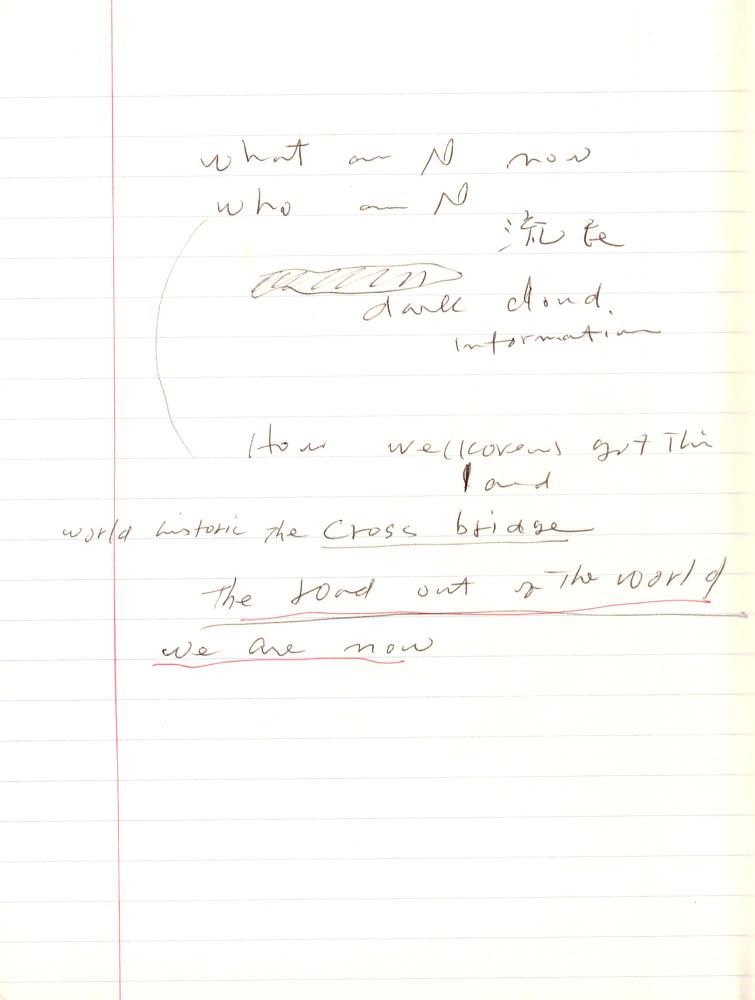 what am I now
who am I
dark cloud.
information
How got this
land
world historic the Cross bridge
The road out of The world
we are now